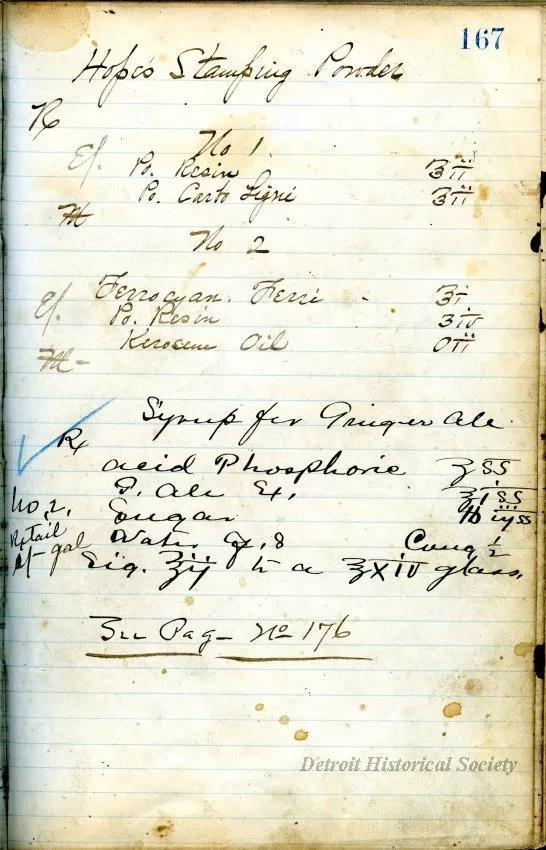 167
Hope's Stamping Powder
Rx
No 1
Po. Resin ʒii
Po. Carbo Ligni ʒii
M
No 2
Ferrocyan. Ferri - ʒi
Po. Resin ʒiv
Kerosene Oil Oii
M -
Syrup for Ginger Ale
Rx
Acid Phosphoric ℥ss
G. Ale Ex. ℥iss
No. 2. Sugar lb iijss
Retail Water q.s Cong ½
gal Sig. ℥ij to a ℥xiv glass.
See Page No 176
Detroit Historical Society